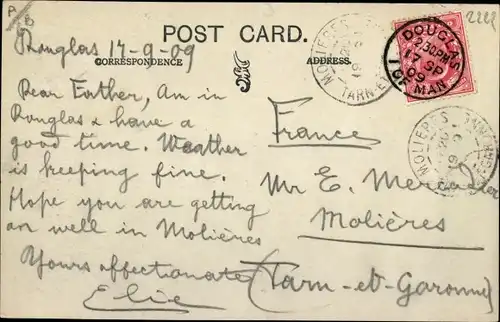 A
B
2222
POST CARD.
Douglas 17-9-09
CORRESPONDENCE
ADDRESS.
MOLIERES
TARN-ET-
DOUGLAS
2.30PM
17 SP
09
I OF MAN
MOLIERES
Dear Father, Am in
Douglas & have a
good time. Weather
is keeping fine.
Hope you are getting
on well in Molières
Yours affectionate
Elie
France
Mr E. Mercadier
Molières
(Tarn-et-Garonne)